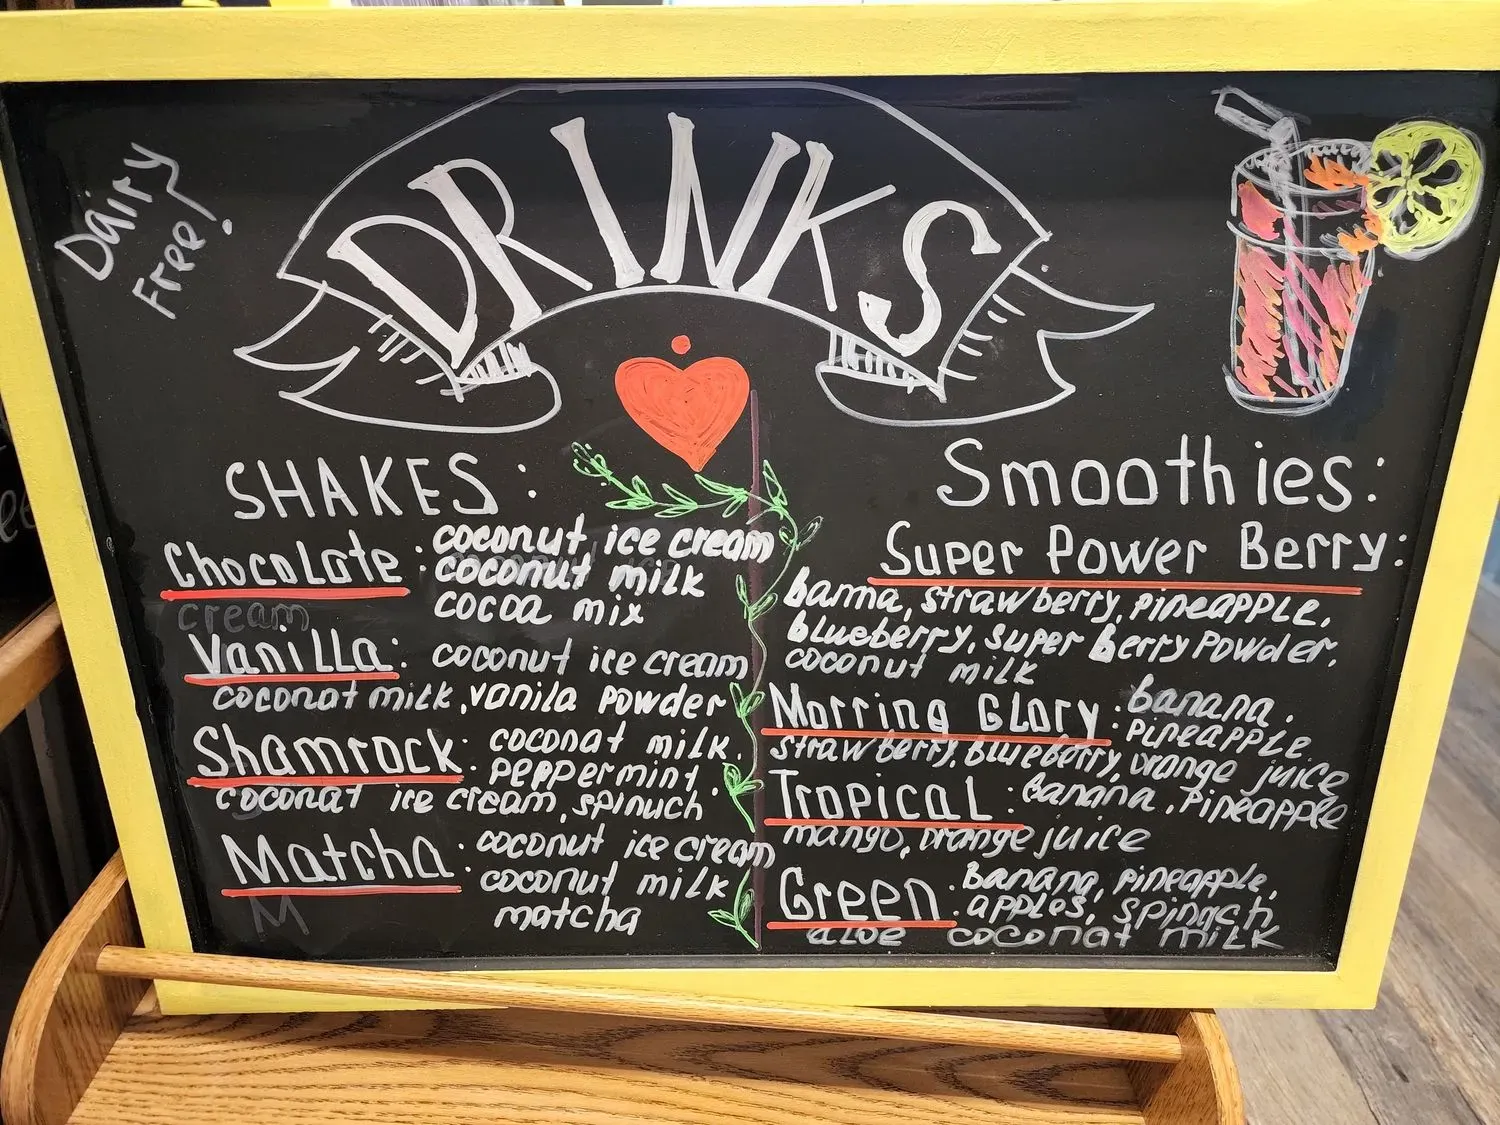 Dairy
Free!
DRINKS
SHAKES:
Chocolate: coconut ice cream
coconut milk
cocoa mix
cream
Vanilla: coconut ice cream
coconat milk, vanila powder
Shamrock: coconat milk,
peppermint,
coconat ice cream, spinuch
Matcha: coconut ice cream
coconut milk
matcha
M
Smoothies:
Super Power Berry:
banna, strawberry, pineapple,
blueberry, super berry powder,
coconut milk
Morring Glory: banana,
pineapple,
strawberry, blueberry, orange juice
Tropical: banana, pineapple
mango, orange juice
Green: banana, pineapple,
apples, spinach
aloe coconat milk